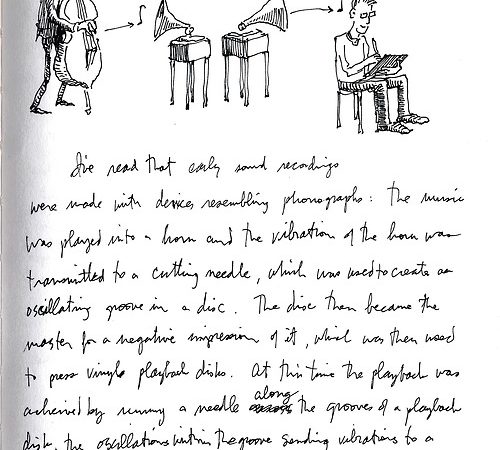 I've read that early sound recordings
were made with devices resembling phonographs: the music
was played into a horn and the vibration of the horn was
transmitted to a cutting needle, which was used to create an
oscillating groove in a disc. The disc then became the
master for a negative impression of it, which was then used
to press vinyl playback disks. At this time the playback was
acheived by running a needle along the grooves of a playback
disk, the oscillations within the groove sending vibrations to a